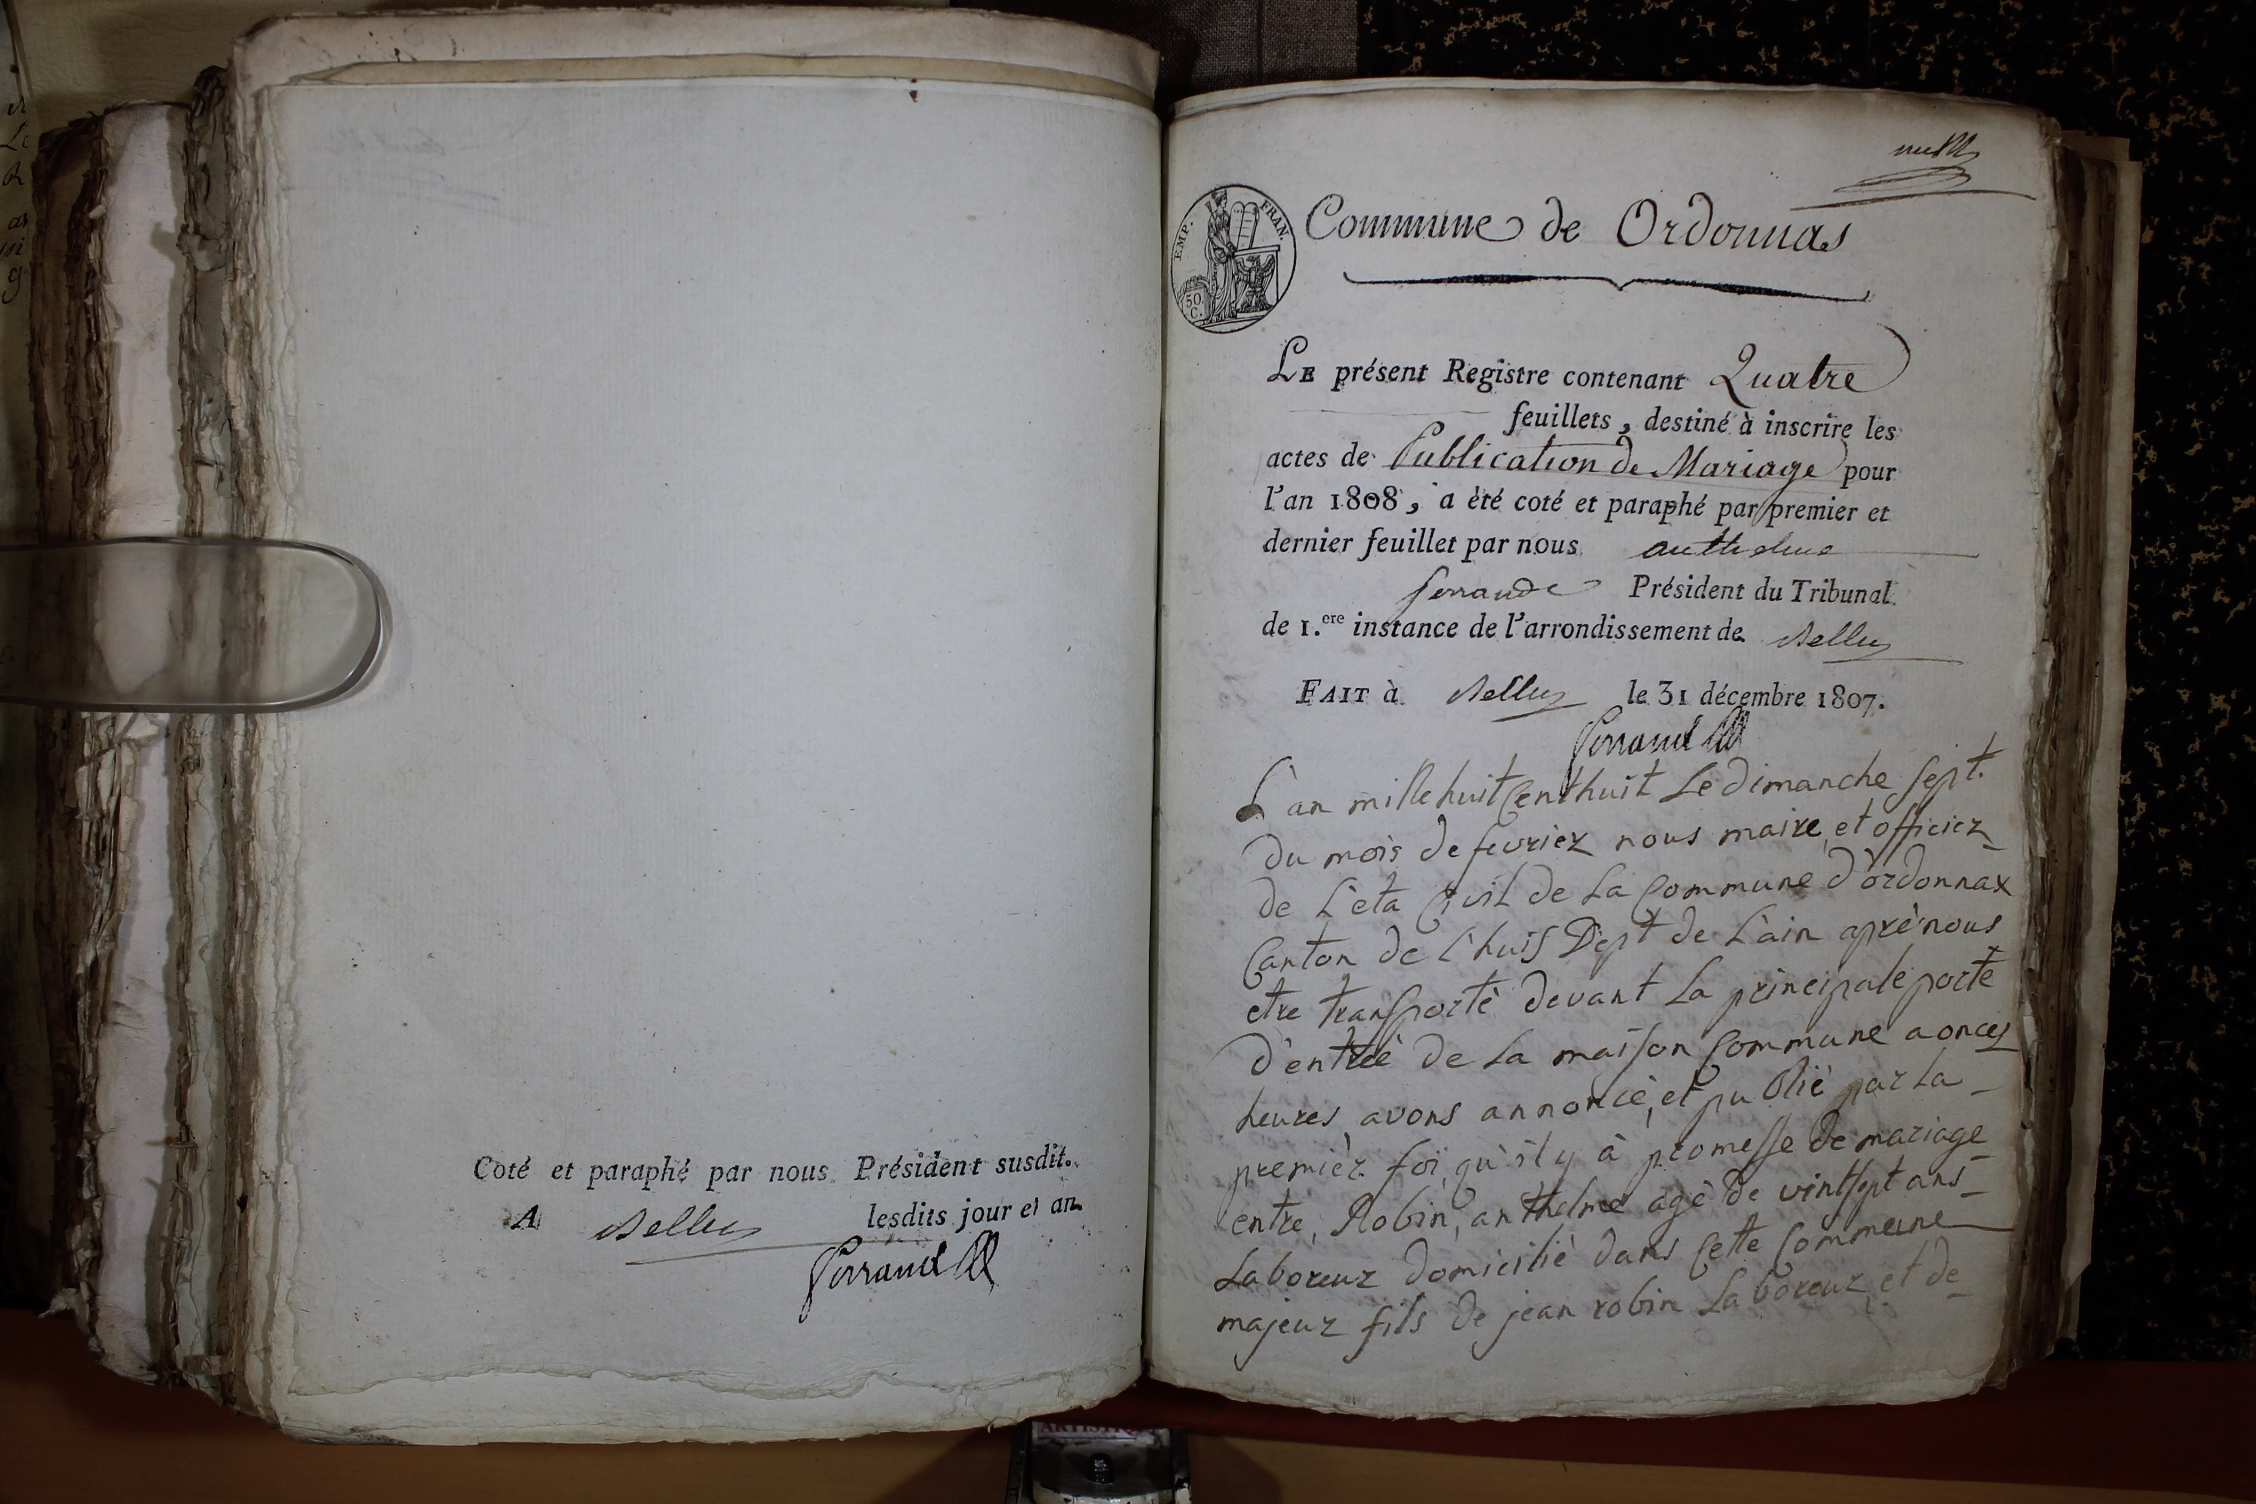 Coté et paraphé par nous Président susdit.
A Belley lesdits jour et an.
Ferrand
EMP. FRAN.
50
C.
Commune de Ordonnas
LE présent Registre contenant Quatre
feuillets, destiné à inscrire les
actes de Publication de Mariage pour
l'an 1808, a été coté et paraphé par premier et
dernier feuillet par nous anthelme
ferrand Président du Tribunal
de 1.ere instance de l'arrondissement de Belley
FAIT à Belley le 31 décembre 1807.
Ferrand
L'an mille huit Cent huit Le dimanche sept.
du mois de fevrier nous maire et officier
de L'èta Civil de La Commune d'ordonnax
Canton de l'huis Dept de L'ain aprè nous
etre transportè devant La principale porte
d'entrèè de La maison Commune a onces
heures avons annoncè, et publiè par La
premièr foi, qu'il y à promesse de mariage
entre, Robin, anthelme agè de vintsept ans
Laboreur domiciliè dans Cette Commune
majeur fils de jean robin Laboreur et de